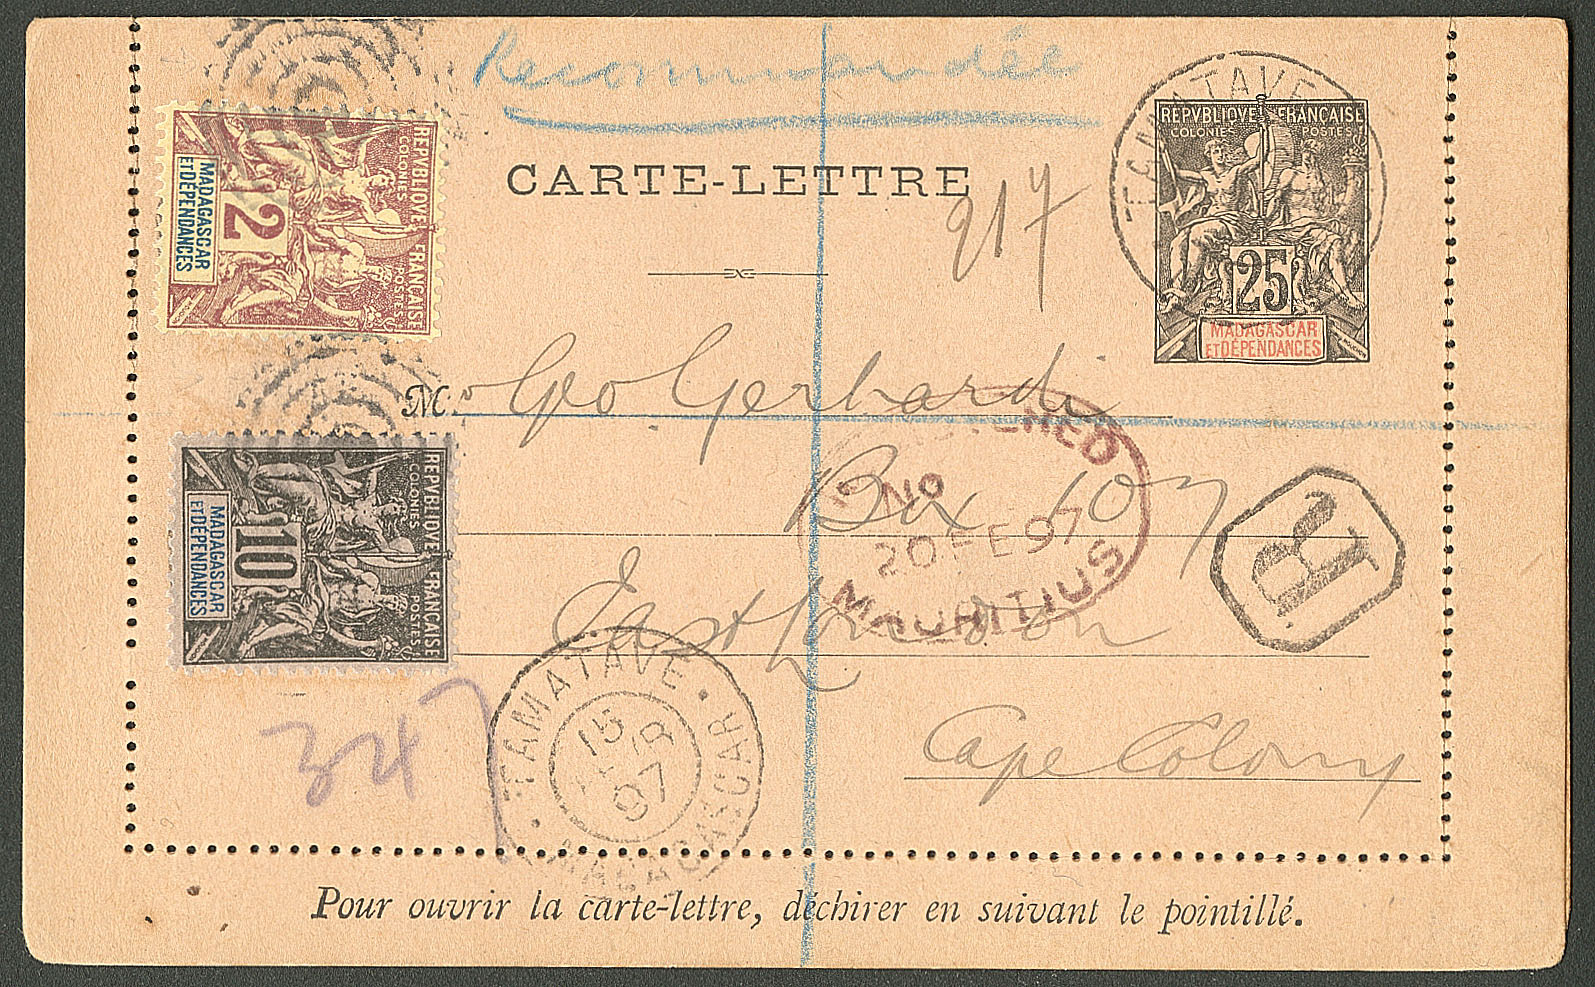 Recommandée
CARTE-LETTRE
217
REPVBLIQVE FRANÇAISE
COLONIES POSTES
25
MADAGASCAR
ET DÉPENDANCES
TAMATAVE
REPVBLIQVE FRANÇAISE
COLONIES POSTES
2
MADAGASCAR
ET DÉPENDANCES
REPVBLIQVE FRANÇAISE
COLONIES POSTES
10
MADAGASCAR
ET DÉPENDANCES
M. Geo Gerhardi
Box 107
East London
Cape Colony
REGISTERED
No
20 FE 97
MAURITIUS
R
347
TAMATAVE
15
97
MADAGASCAR
Pour ouvrir la carte-lettre, déchirer en suivant le pointillé.